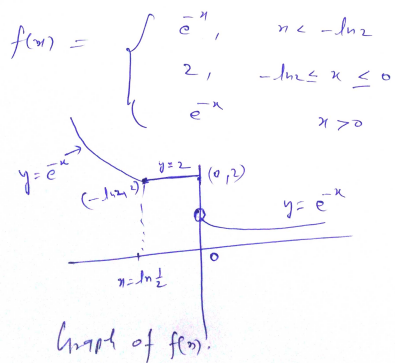 f(x) = { e^-x, x < -ln2
2, -ln2 ≤ x ≤ 0
e^-x x > 0
y = 2
y = e^-x
(-ln2, 2)
(0, 2)
y = e^-x
0
x = ln 1/2
Graph of f(x).